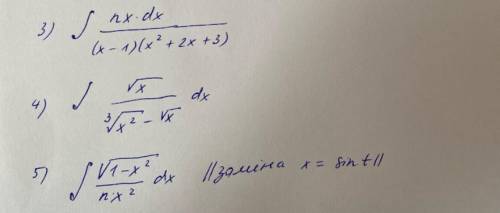 3) ∫ nx·dx / (x-1)(x²+2x+3)
4) ∫ √x / (∛x² - √x) dx
5) ∫ √(1-x²) / n·x² dx || заміна x = sin t ||